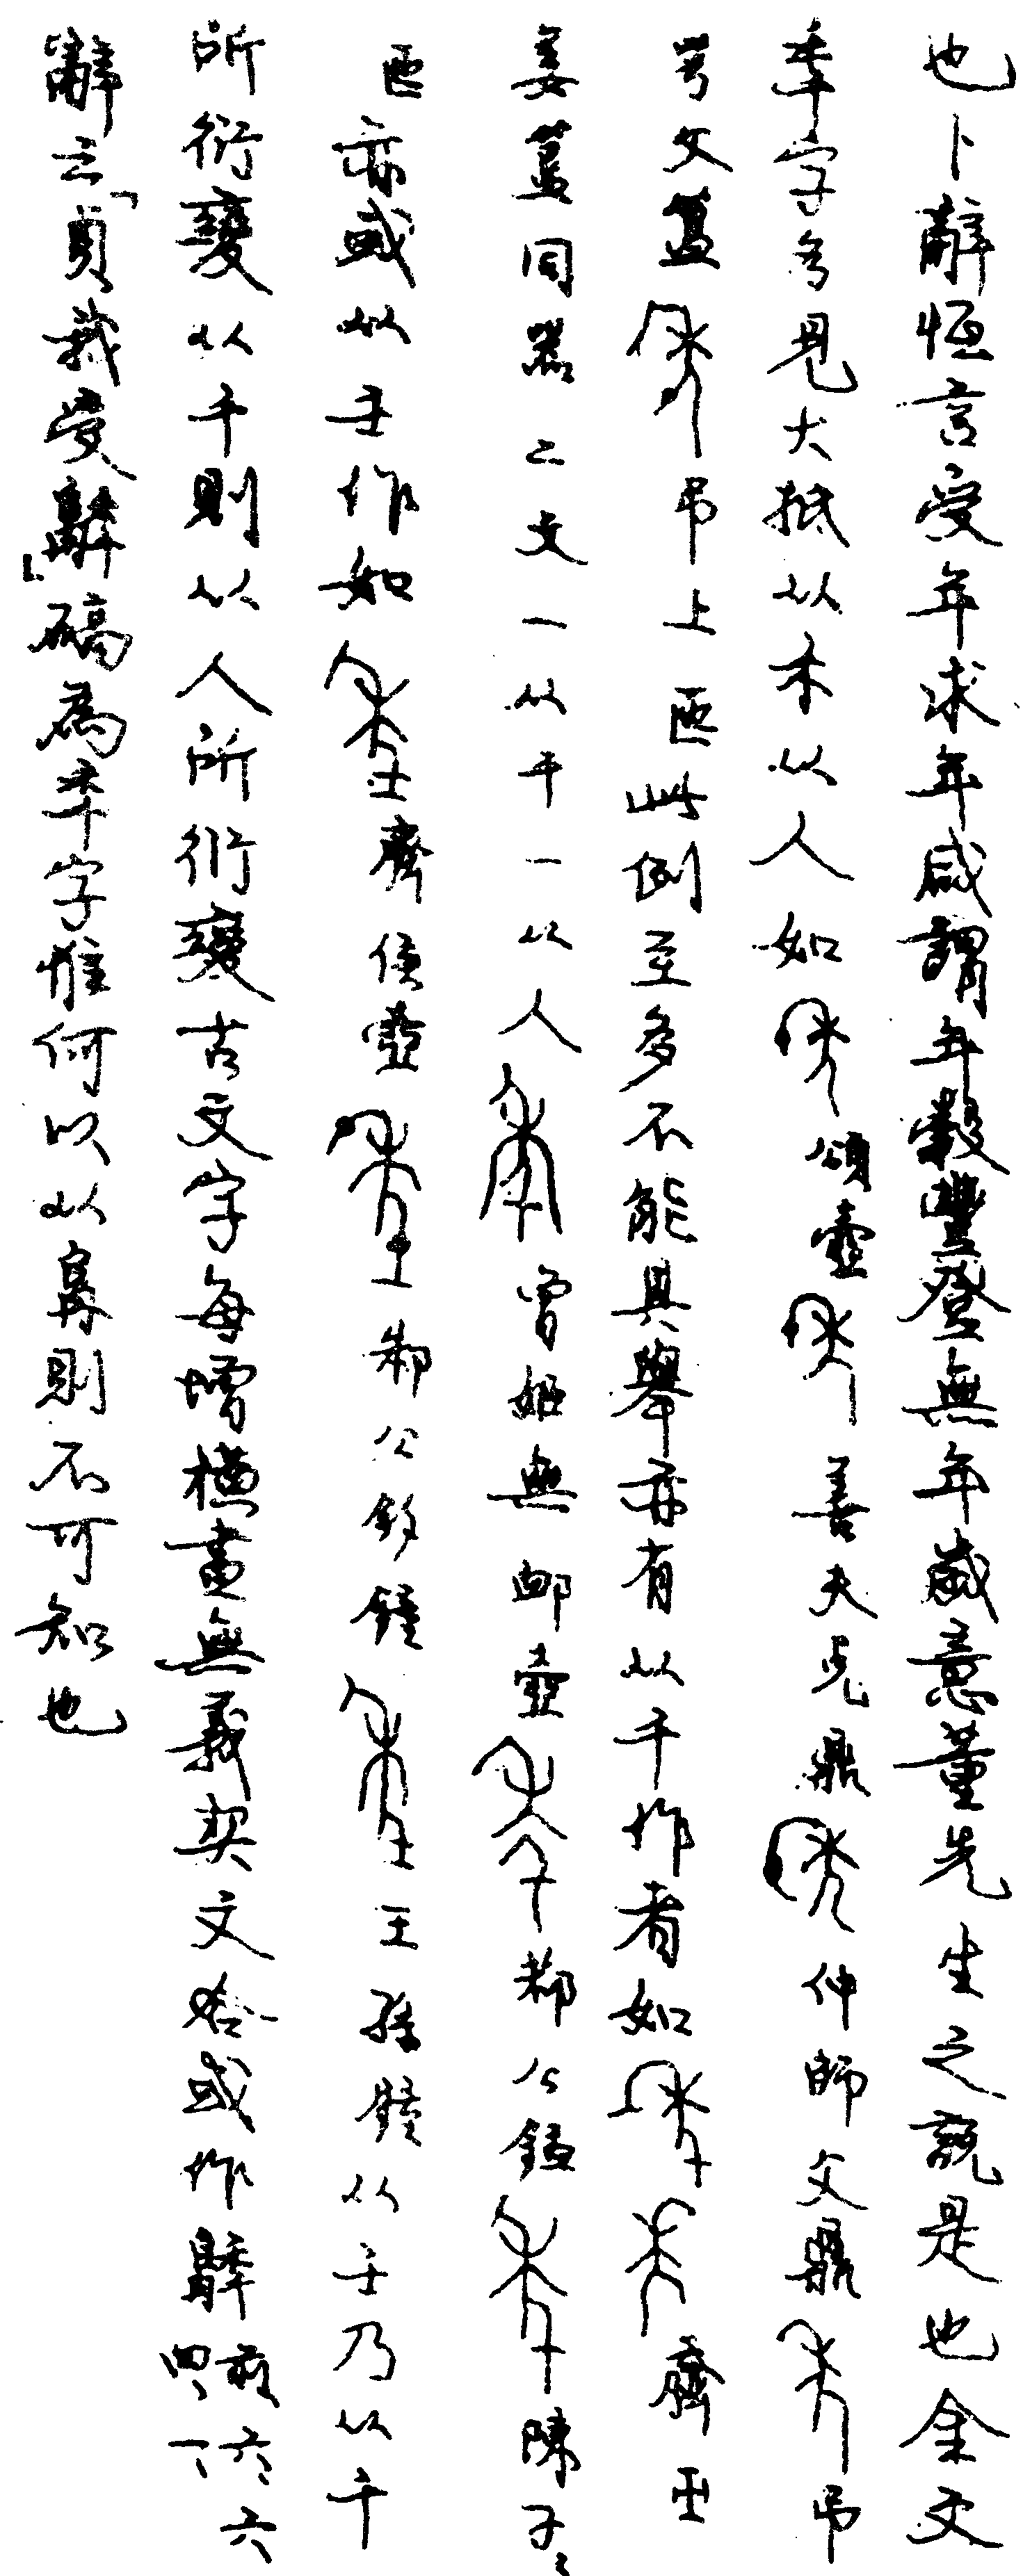 也卜辭恆言受年求年咸謂年穀豐登無年歲意董先生之說是也金文
季字多見大抵从禾从人如頌壺善夫克鼎仲師父鼎弔
文簋弔上匜此例至多不能具舉亦有从千作者如齊
姜簋同器之文一从千一从人曾姬無卹壺鄀公鎛陳子
匜亦或从壬作如齊侯壺邾公釛鐘王孫鐘从壬乃从千
所衍變从千則从人所衍變古文字每增橫畫無義契文或作前六六四一
辭云「貞我受」碻為季字惟何以从鼻則不可知也